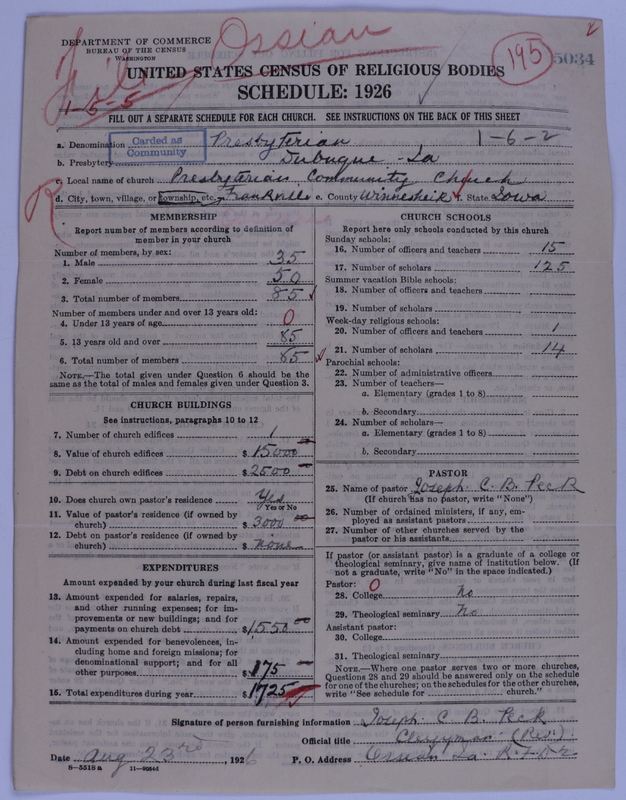 Ossian
195
5034
DEPARTMENT OF COMMERCE
BUREAU OF THE CENSUS
WASHINGTON
UNITED STATES CENSUS OF RELIGIOUS BODIES
1-5-5
SCHEDULE: 1926
FILL OUT A SEPARATE SCHEDULE FOR EACH CHURCH. SEE INSTRUCTIONS ON THE BACK OF THIS SHEET
Carded as
Community
a. Denomination Presbyterian 1-6-2
b. Presbytery Dubuque - Ia
c. Local name of church Presbyterian Community Church
d. City, town, village, or township, etc. Frankville e. County Winneshiek f. State Iowa
R
MEMBERSHIP
Report number of members according to definition of
member in your church
Number of members, by sex:
1. Male 35
2. Female 50
3. Total number of members 85
Number of members under and over 13 years old:
4. Under 13 years of age 0
5. 13 years old and over 85
6. Total number of members 85
NOTE.—The total given under Question 6 should be
same as the total of males and females given under Question 3.
CHURCH BUILDINGS
See instructions, paragraphs 10 to 12
7. Number of church edifices 1
8. Value of church edifices $15000
9. Debt on church edifices $2500
10. Does church own pastor's residence Yes
Yes or No
11. Value of pastor's residence (if owned by
church) $3000
12. Debt on pastor's residence (if owned by
church) $none
EXPENDITURES
Amount expended by your church during last fiscal year
13. Amount expended for salaries, repairs,
and other running expenses; for im-
provements or new buildings; and for
payments on church debt $1550
14. Amount expended for benevolences, in-
cluding home and foreign missions; for
denominational support; and for all
other purposes $175
15. Total expenditures during year $1725
CHURCH SCHOOLS
Report here only schools conducted by this church
Sunday schools:
16. Number of officers and teachers 15
17. Number of scholars 125
Summer vacation Bible schools:
18. Number of officers and teachers
19. Number of scholars
Week-day religious schools:
20. Number of officers and teachers 1
21. Number of scholars 14
Parochial schools:
22. Number of administrative officers
23. Number of teachers—
a. Elementary (grades 1 to 8)
b. Secondary
24. Number of scholars—
a. Elementary (grades 1 to 8)
b. Secondary
PASTOR
25. Name of pastor Joseph C. B. Peck
(If church has no pastor, write "None")
26. Number of ordained ministers, if any, em-
ployed as assistant pastors
27. Number of other churches served by the
pastor or his assistants
If pastor (or assistant pastor) is a graduate of a college or
theological seminary, give name of institution below. (If
not a graduate, write "No" in the space indicated.)
Pastor: 0
28. College No
29. Theological seminary No
Assistant pastor:
30. College
31. Theological seminary
NOTE.—Where one pastor serves two or more churches,
Questions 28 and 29 should be answered only on the schedule
for one of the churches; on the schedules for the other churches,
write "See schedule for church."
Signature of person furnishing information Joseph C B Peck
Official title Clergyman (Rev.)
Date Aug 23rd, 1926 P. O. Address Ossian Ia. R.F.D. 2
8-5518 a